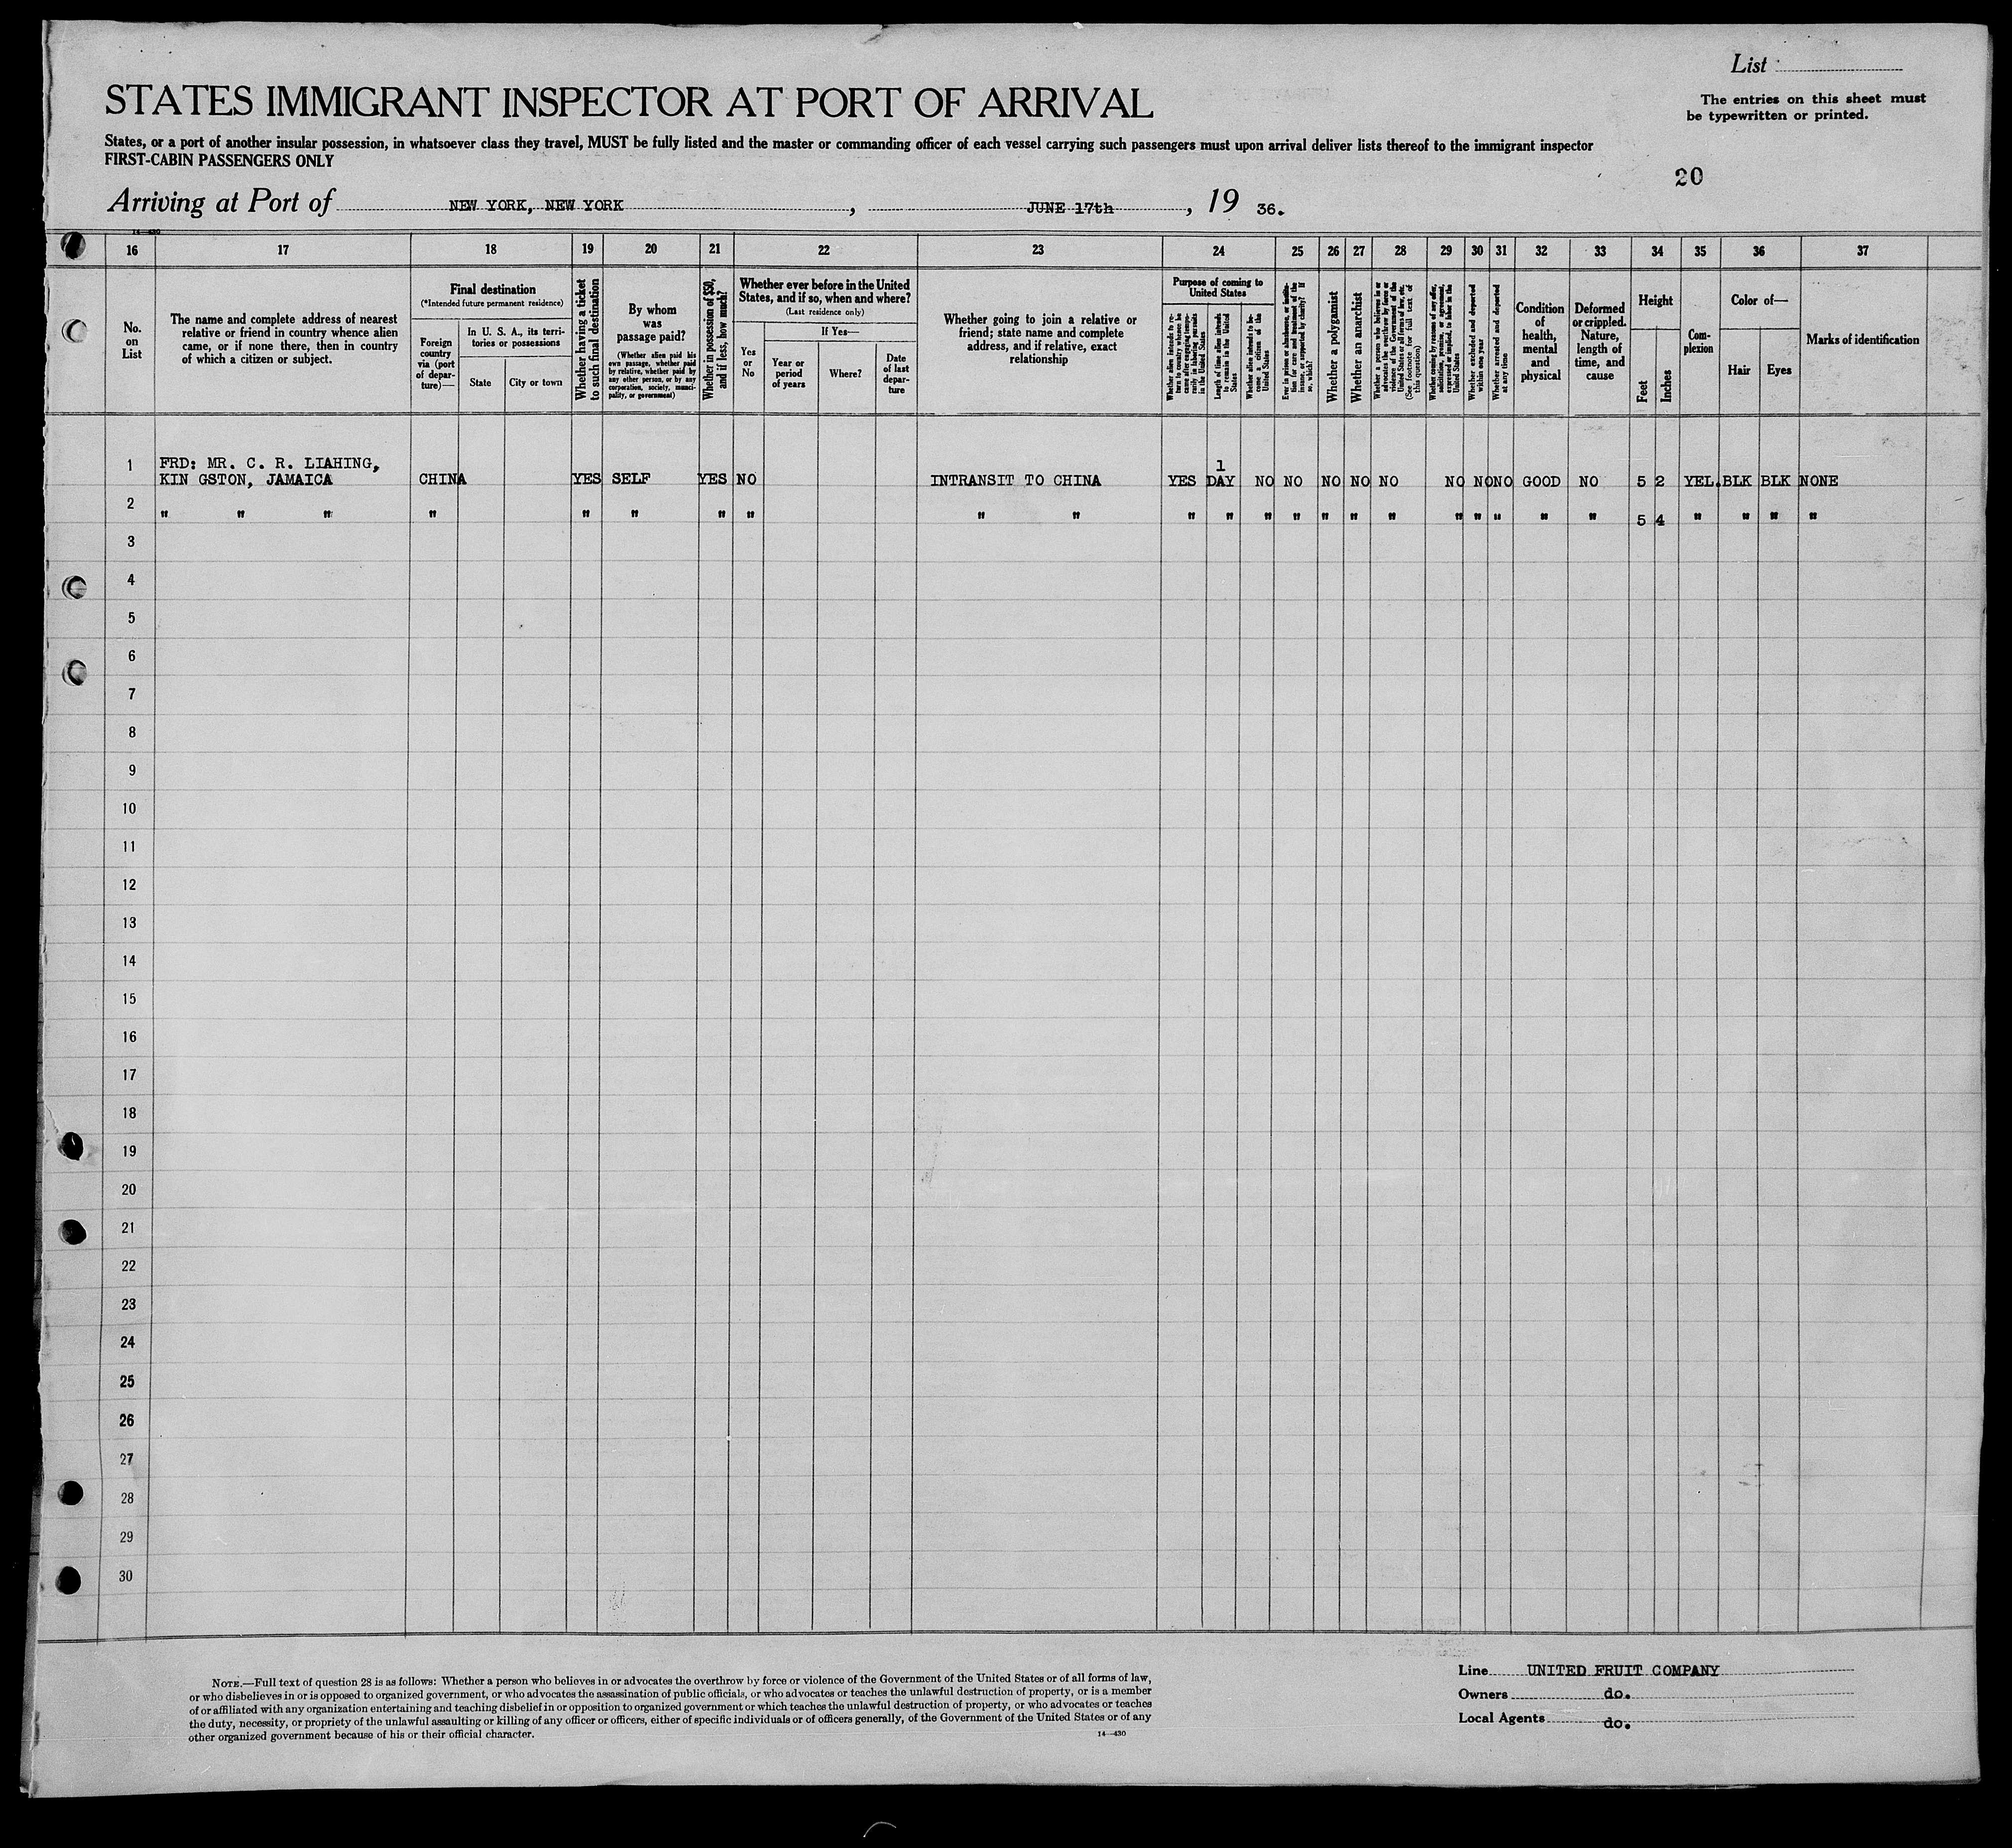 List
STATES IMMIGRANT INSPECTOR AT PORT OF ARRIVAL
The entries on this sheet must
be typewritten or printed.
States, or a port of another insular possession, in whatsoever class they travel, MUST be fully listed and the master or commanding officer of each vessel carrying such passengers must upon arrival deliver lists thereof to the immigrant inspector
FIRST-CABIN PASSENGERS ONLY
20
Arriving at Port of NEW YORK, NEW YORK , JUNE 17th , 19 36.
14—430
16 17 18 19 20 21 22 23 24 25 26 27 28 29 30 31 32 33 34 35 36 37
No.
on
List
The name and complete address of nearest
relative or friend in country whence alien
came, or if none there, then in country
of which a citizen or subject.
Final destination
(*Intended future permanent residence)
Foreign
country
via (port
of depar-
ture)—
In U. S. A., its terri-
tories or possessions
State
City or town
Whether having a ticket
to such final destination
By whom
was
passage paid?
(Whether alien paid his
own passage, whether paid
by relative, whether paid by
any other person, or by any
corporation, society, munici-
pality, or government)
Whether in possession of $50,
and if less, how much?
Whether ever before in the United
States, and if so, when and where?
(Last residence only)
Yes
or
No
If Yes—
Year or
period
of years
Where?
Date
of last
depar-
ture
Whether going to join a relative or
friend; state name and complete
address, and if relative, exact
relationship
Purpose of coming to
United States
Whether alien intends to re-
turn to country whence he
came after engaging tempo-
rarily in laboring pursuits
in the United States
Length of time alien intends
to remain in the United
States
Whether alien intends to be-
come a citizen of the
United States
Ever in prison or almshouse, or institu-
tion for care and treatment of the
insane, or supported by charity? If
so, which?
Whether a polygamist
Whether an anarchist
Whether a person who believes in or
advocates the overthrow by force or
violence of the Government of the
United States or all forms of law, etc.
(See footnote for full text of
this question)
Whether coming by reason of any offer,
solicitation, promise, or agreement,
expressed or implied, to labor in the
United States
Whether excluded and deported
within one year
Whether arrested and deported
at any time
Condition
of
health,
mental
and
physical
Deformed
or crippled.
Nature,
length of
time, and
cause
Height
Feet
Inches
Com-
plexion
Color of—
Hair
Eyes
Marks of identification
1 FRD: MR. C. R. LIAHING, 1
KIN GSTON, JAMAICA CHINA YES SELF YES NO INTRANSIT TO CHINA YES DAY NO NO NO NO NO NO NO NO GOOD NO 5 2 YEL. BLK BLK NONE
2 " " " " " " " " " " " " " " " " " " " " " " 5 4 " " " "
3
4
5
6
7
8
9
10
11
12
13
14
15
16
17
18
19
20
21
22
23
24
25
26
27
28
29
30
NOTE.—Full text of question 28 is as follows: Whether a person who believes in or advocates the overthrow by force or violence of the Government of the United States or of all forms of law,
or who disbelieves in or is opposed to organized government, or who advocates the assassination of public officials, or who advocates or teaches the unlawful destruction of property, or is a member
of or affiliated with any organization entertaining and teaching disbelief in or opposition to organized government or which teaches the unlawful destruction of property, or who advocates or teaches
the duty, necessity, or propriety of the unlawful assaulting or killing of any officer or officers, either of specific individuals or of officers generally, of the Government of the United States or of any
other organized government because of his or their official character.
14—430
Line UNITED FRUIT COMPANY
Owners do.
Local Agents do.